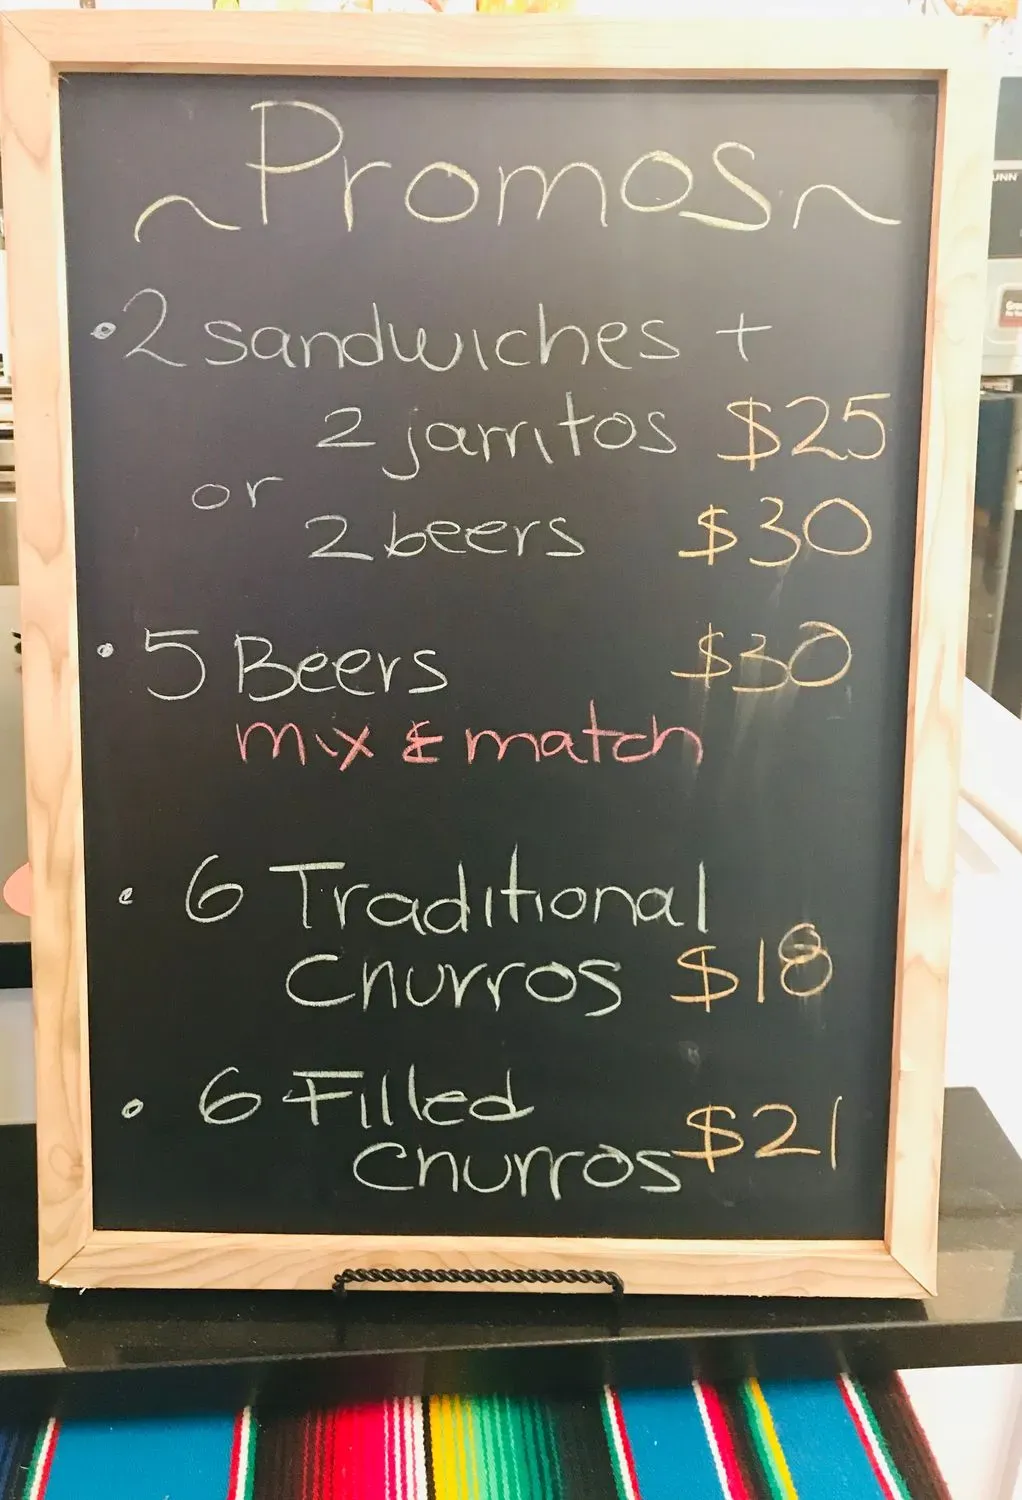 ~Promos~
• 2 sandwiches +
2 jarritos $25
or
2 beers $30
• 5 Beers $30
mix & match
• 6 Traditional
Churros $18
• 6 Filled
Churros $21
UNN